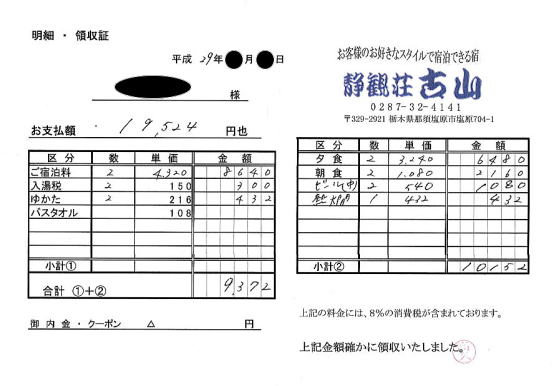 明細・領収証
平成 29年 月 日
様
お支払額 19,524 円也
区分 数 単価 金額
ご宿泊料 2 4,320 8640
入湯税 2 150 300
ゆかた 2 216 432
バスタオル 108
小計①
合計 ①+② 9,372
御内金・クーポン △ 円
お客様のお好きなスタイルで宿泊できる宿
静観荘古山
0287-32-4141
〒329-2921 栃木県那須塩原市塩原704-1
区分 数 単価 金額
夕食 2 3,240 6480
朝食 2 1,080 2160
ビール(中) 2 540 1080
1 432 432
小計② 10152
上記の料金には、8%の消費税が含まれております。
上記金額確かに領収いたしました。